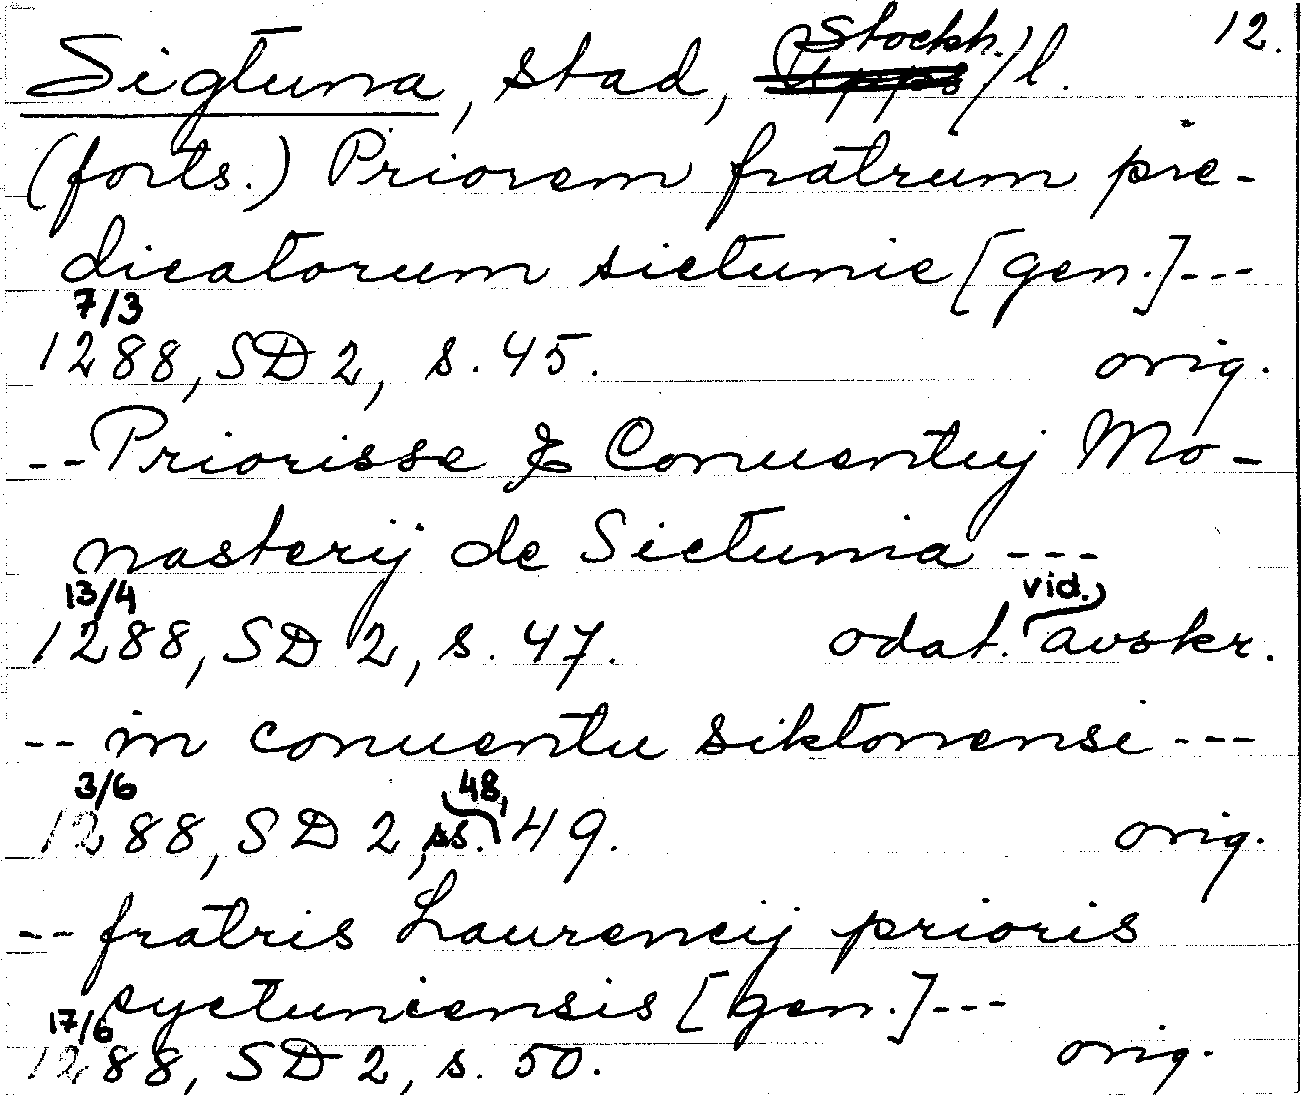 12.
Sigtuna, stad, Stockh./l.
(forts.) Priorem fratrum pre-
dicatorum sictunie [gen.]---
7/3
1288, SD 2, s. 45. orig.
--Priorisse & Conuentuj Mo-
nasterij de Sictunia ---
13/4 vid.
1288, SD 2, s. 47. odat. avskr.
-- in conuentu siktonensi ---
3/6 48,
1288, SD 2, ss. 49. orig.
-- fratris Laurencij prioris
syctuniensis [gen.]---
17/6
1288, SD 2, s. 50. orig.